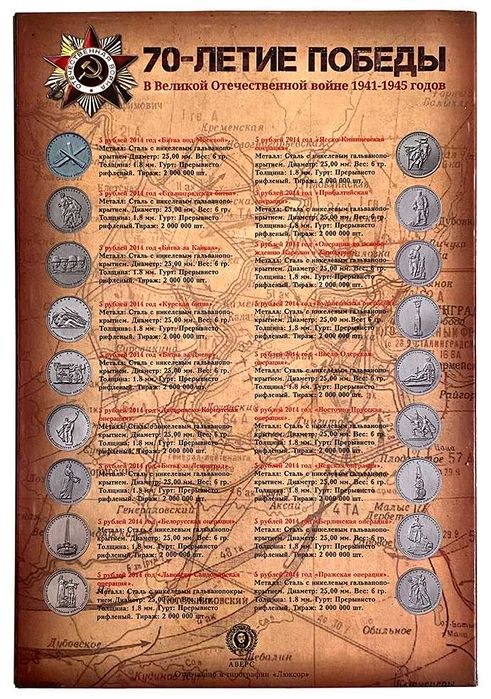 70-ЛЕТИЕ ПОБЕДЫ
В Великой Отечественной войне 1941-1945 годов
5 рублей 2014 год «Битва под Москвой»
Металл: Сталь с никелевым гальванопо-
крытием. Диаметр: 25,00 мм. Вес: 6 гр.
Толщина: 1.8 мм. Гурт: Прерывисто
рифленый. Тираж: 2 000 000 шт.
5 рублей 2014 год «Сталинградская битва»
Металл: Сталь с никелевым гальванопо-
крытием. Диаметр: 25,00 мм. Вес: 6 гр.
Толщина: 1.8 мм. Гурт: Прерывисто
рифленый. Тираж: 2 000 000 шт.
5 рублей 2014 год «Битва за Кавказ»
Металл: Сталь с никелевым гальванопо-
крытием. Диаметр: 25,00 мм. Вес: 6 гр.
Толщина: 1.8 мм. Гурт: Прерывисто
рифленый. Тираж: 2 000 000 шт.
5 рублей 2014 год «Курская битва»
Металл: Сталь с никелевым гальванопо-
крытием. Диаметр: 25,00 мм. Вес: 6 гр.
Толщина: 1.8 мм. Гурт: Прерывисто
рифленый. Тираж: 2 000 000 шт.
5 рублей 2014 год «Битва за Днепр»
Металл: Сталь с никелевым гальванопо-
крытием. Диаметр: 25,00 мм. Вес: 6 гр.
Толщина: 1.8 мм. Гурт: Прерывисто
рифленый. Тираж: 2 000 000 шт.
5 рублей 2014 год «Днепровско-Карпатская
операция»
Металл: Сталь с никелевым гальванопо-
крытием. Диаметр: 25,00 мм. Вес: 6 гр.
Толщина: 1.8 мм. Гурт: Прерывисто
рифленый. Тираж: 2 000 000 шт.
5 рублей 2014 год «Битва за Ленинград»
Металл: Сталь с никелевым гальванопо-
крытием. Диаметр: 25,00 мм. Вес: 6 гр.
Толщина: 1.8 мм. Гурт: Прерывисто
рифленый. Тираж: 2 000 000 шт.
5 рублей 2014 год «Белорусская операция»
Металл: Сталь с никелевым гальванопо-
крытием. Диаметр: 25,00 мм. Вес: 6 гр.
Толщина: 1.8 мм. Гурт: Прерывисто
рифленый. Тираж: 2 000 000 шт.
5 рублей 2014 год «Львовско-Сандомирская
операция»
Металл: Сталь с никелевым гальванопокры-
тием. Диаметр: 25,00 мм. Вес: 6 гр.
Толщина: 1.8 мм. Гурт: Прерывисто
рифленый. Тираж: 2 000 000 шт.
5 рублей 2014 год «Ясско-Кишиневская
операция»
Металл: Сталь с никелевым гальванопо-
крытием. Диаметр: 25,00 мм. Вес: 6 гр.
Толщина: 1.8 мм. Гурт: Прерывисто
рифленый. Тираж: 2 000 000 шт.
5 рублей 2014 год «Прибалтийская
операция»
Металл: Сталь с никелевым гальванопо-
крытием. Диаметр: 25,00 мм. Вес: 6 гр.
Толщина: 1.8 мм. Гурт: Прерывисто
рифленый. Тираж: 2 000 000 шт.
5 рублей 2014 год «Операция по освобо-
ждению Карелии и Заполярья»
Металл: Сталь с никелевым гальванопо-
крытием. Диаметр: 25,00 мм. Вес: 6 гр.
Толщина: 1.8 мм. Гурт: Прерывисто
рифленый. Тираж: 2 000 000 шт.
5 рублей 2014 год «Будапештская операция»
Металл: Сталь с никелевым гальванопо-
крытием. Диаметр: 25,00 мм. Вес: 6 гр.
Толщина: 1.8 мм. Гурт: Прерывисто
рифленый. Тираж: 2 000 000 шт.
5 рублей 2014 год «Висло-Одерская
операция»
Металл: Сталь с никелевым гальванопо-
крытием. Диаметр: 25,00 мм. Вес: 6 гр.
Толщина: 1.8 мм. Гурт: Прерывисто
рифленый. Тираж: 2 000 000 шт.
5 рублей 2014 год «Восточно-Прусская
операция»
Металл: Сталь с никелевым гальванопо-
крытием. Диаметр: 25,00 мм. Вес: 6 гр.
Толщина: 1.8 мм. Гурт: Прерывисто
рифленый. Тираж: 2 000 000 шт.
5 рублей 2014 год «Венская операция»
Металл: Сталь с никелевым гальванопо-
крытием. Диаметр: 25,00 мм. Вес: 6 гр.
Толщина: 1.8 мм. Гурт: Прерывисто
рифленый. Тираж: 2 000 000 шт.
5 рублей 2014 год «Берлинская операция»
Металл: Сталь с никелевым гальванопо-
крытием. Диаметр: 25,00 мм. Вес: 6 гр.
Толщина: 1.8 мм. Гурт: Прерывисто
рифленый. Тираж: 2 000 000 шт.
5 рублей 2014 год «Пражская операция»
Металл: Сталь с никелевым гальванопо-
крытием. Диаметр: 25,00 мм. Вес: 6 гр.
Толщина: 1.8 мм. Гурт: Прерывисто
рифленый. Тираж: 2 000 000 шт.
АВЕРС
Отпечатано в типографии «Люксор»
Каменская
Генераловский
Аксай
4 ТА
Дубовское
Обильное